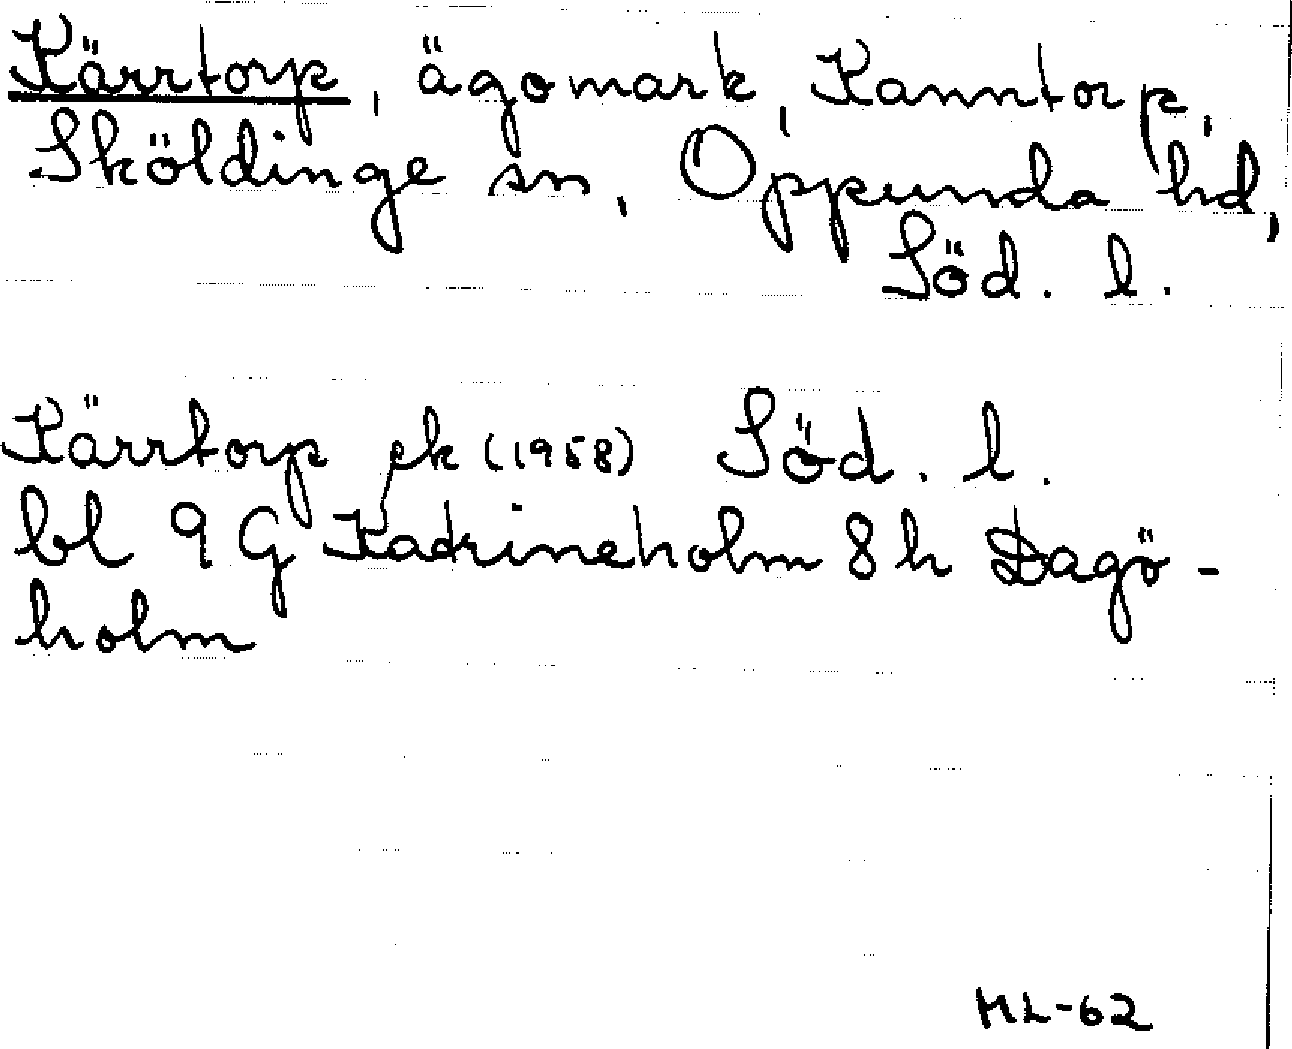 Kärrtorp, ägomark, Kanntorp,
Sköldinge sn, Oppunda hd,
Söd. l.
Kärrtorp ek (1958) Söd. l.
bl 9 G Katrineholm 8 h Dagö-
holm
ML-62